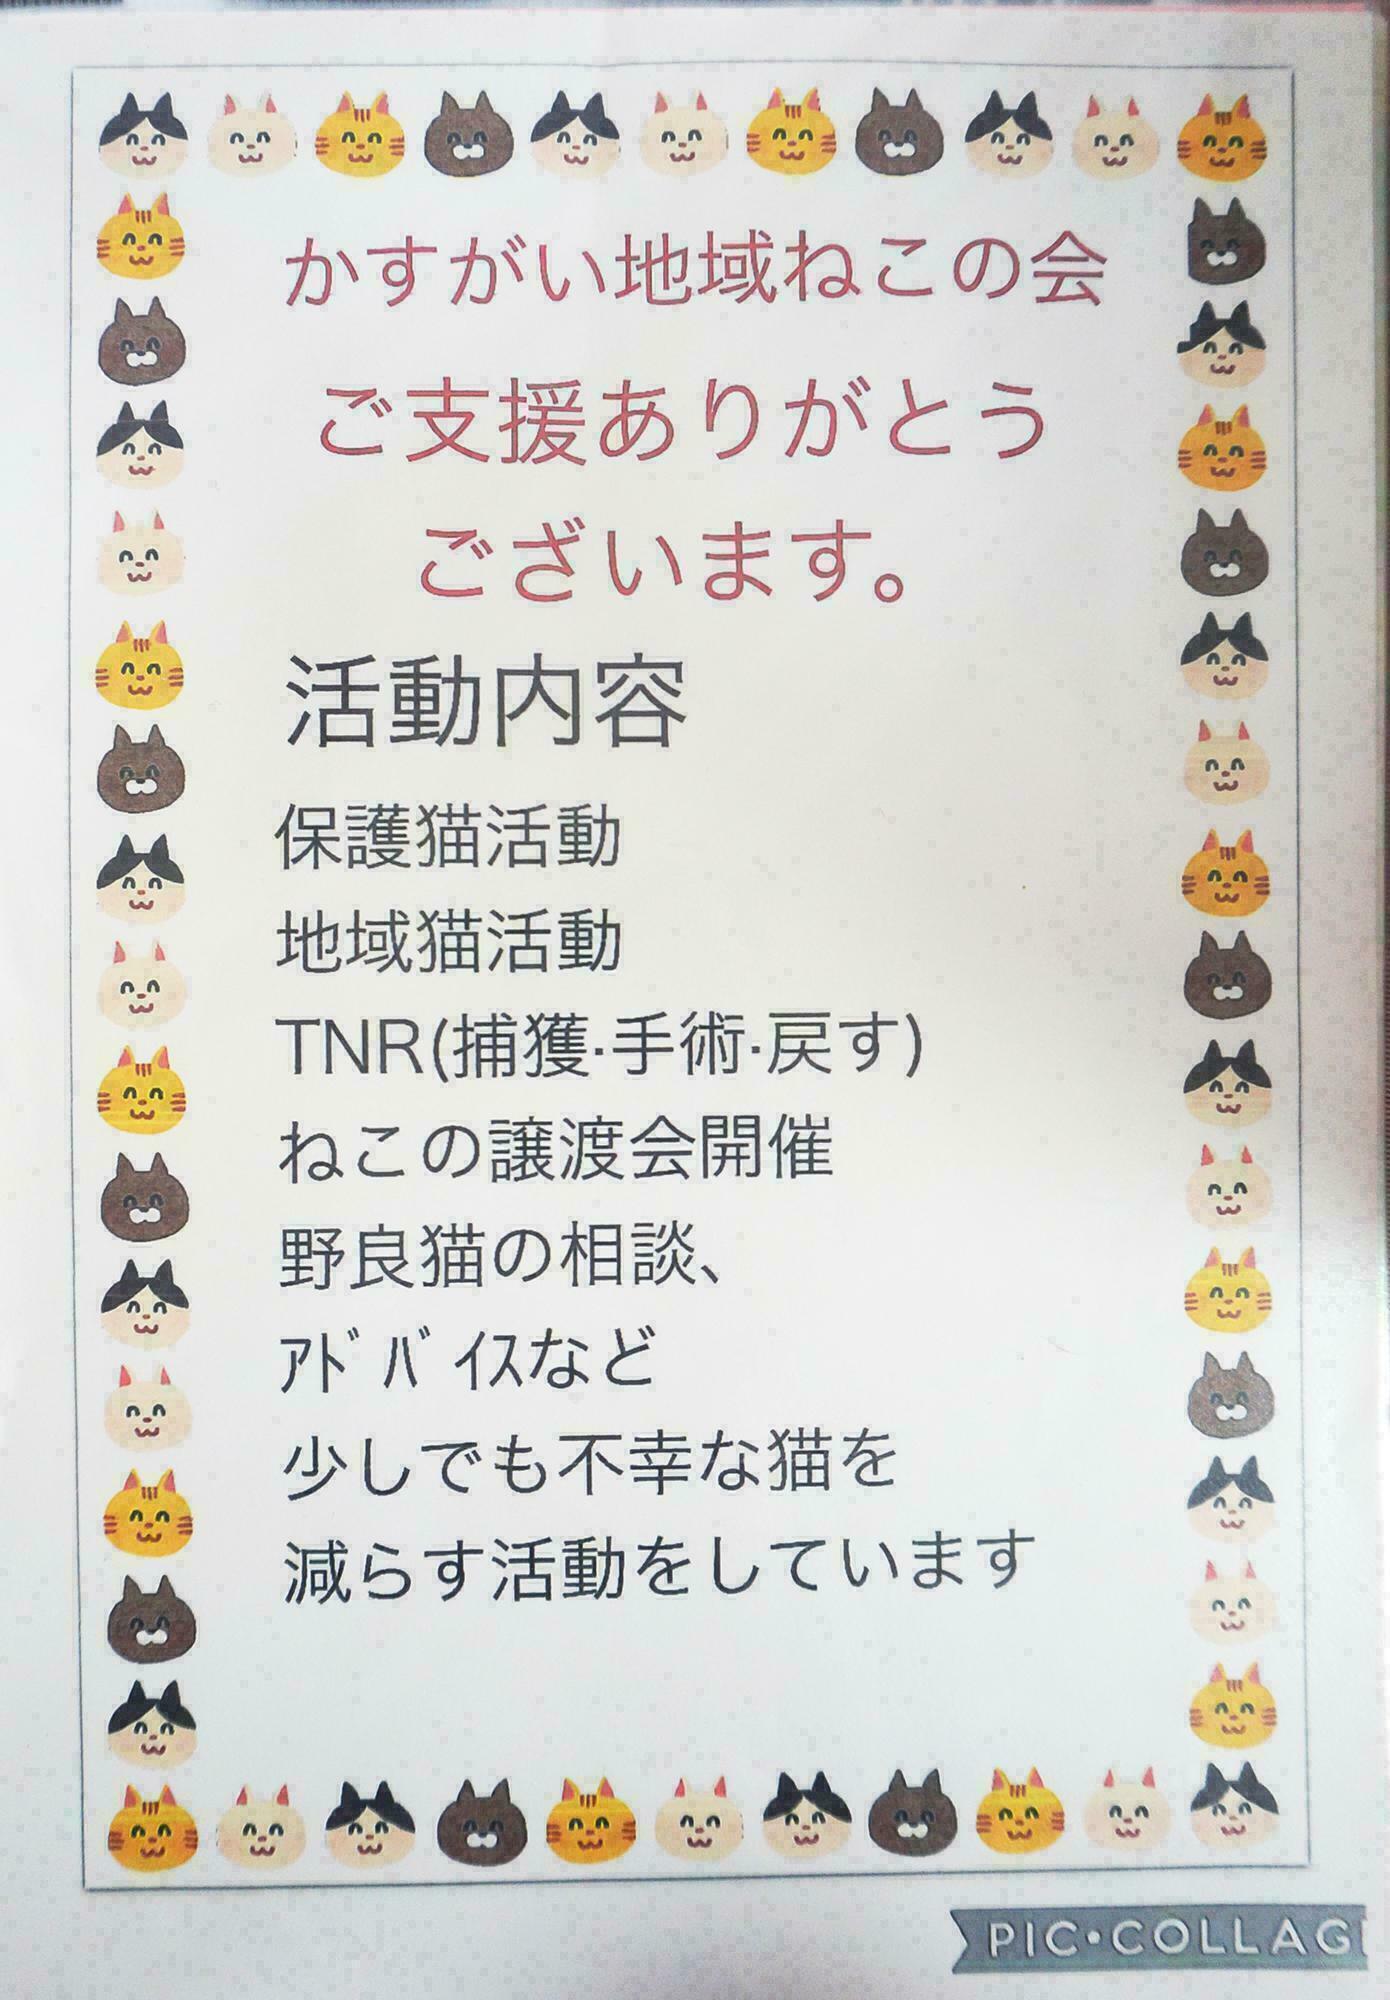 かすがい地域ねこの会
ご支援ありがとう
ございます。
活動内容
保護猫活動
地域猫活動
TNR(捕獲·手術·戻す)
ねこの譲渡会開催
野良猫の相談、
ｱﾄﾞﾊﾞｲｽなど
少しでも不幸な猫を
減らす活動をしています
PIC•COLLAG